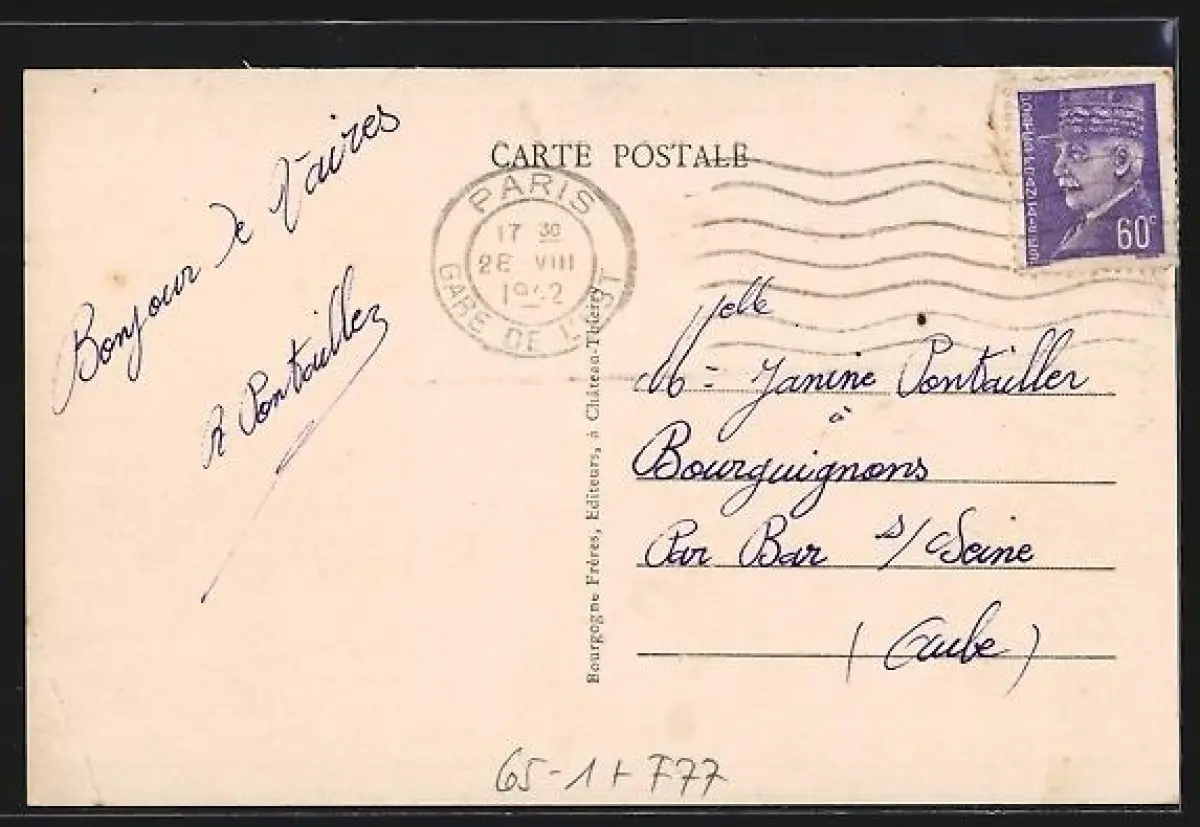 Bonjour de Vaires
R Pontailler
CARTE POSTALE
PARIS
17 30
28 VIII
1942
GARE DE L'EST
POSTES FRANÇAISES
60c
Bourgogne Frères, Editeurs, à Château-Thierry
Melle
M= Janine Pontailler
à
Bourguignons
Par Bar s/ Seine
(Aube)
65-1+ F77